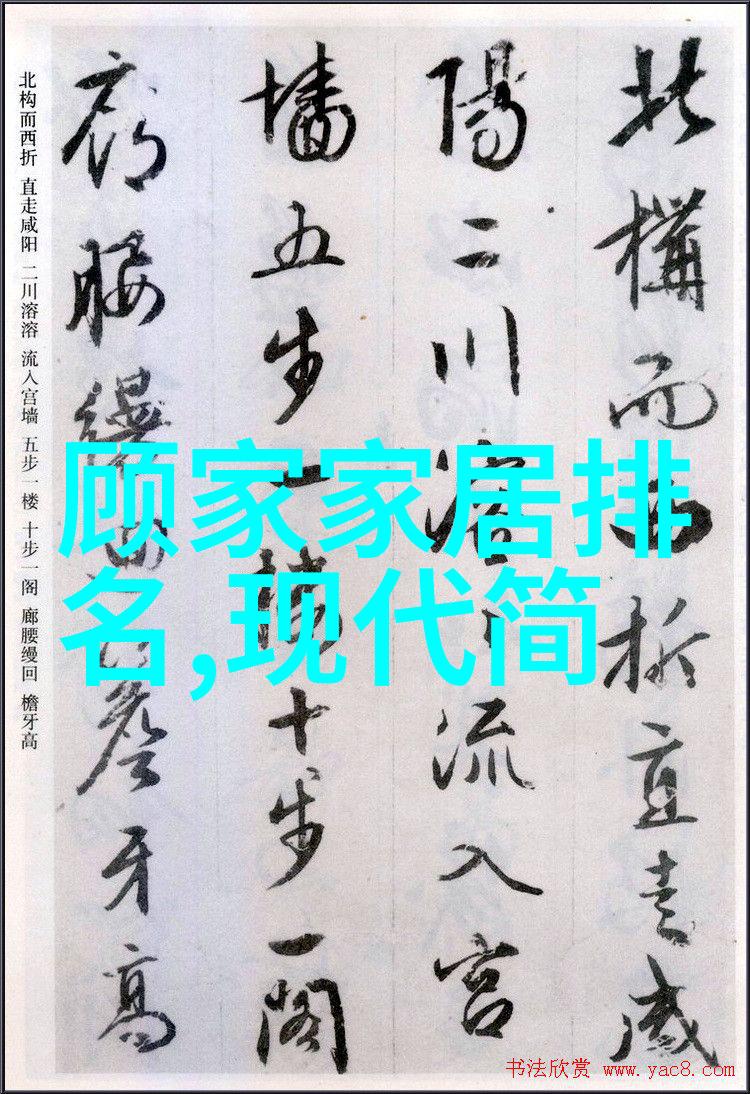 北構而西折直走咸
陽二川溶〻流入宮
墻五步一樓十步一閣
廊腰縵迴簷牙高
北构而西折 直走咸阳 二川溶溶 流入宫墙 五步一楼 十步一阁 廊腰缦回 檐牙高
顾家家居排
名,现代简
书法欣赏 www.yac8.com